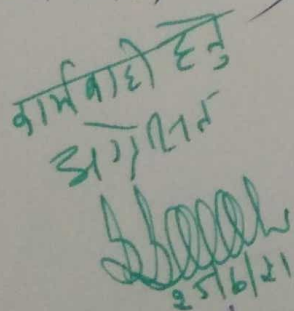 कार्यवाही हेतु
अग्रेसित
25/6/21